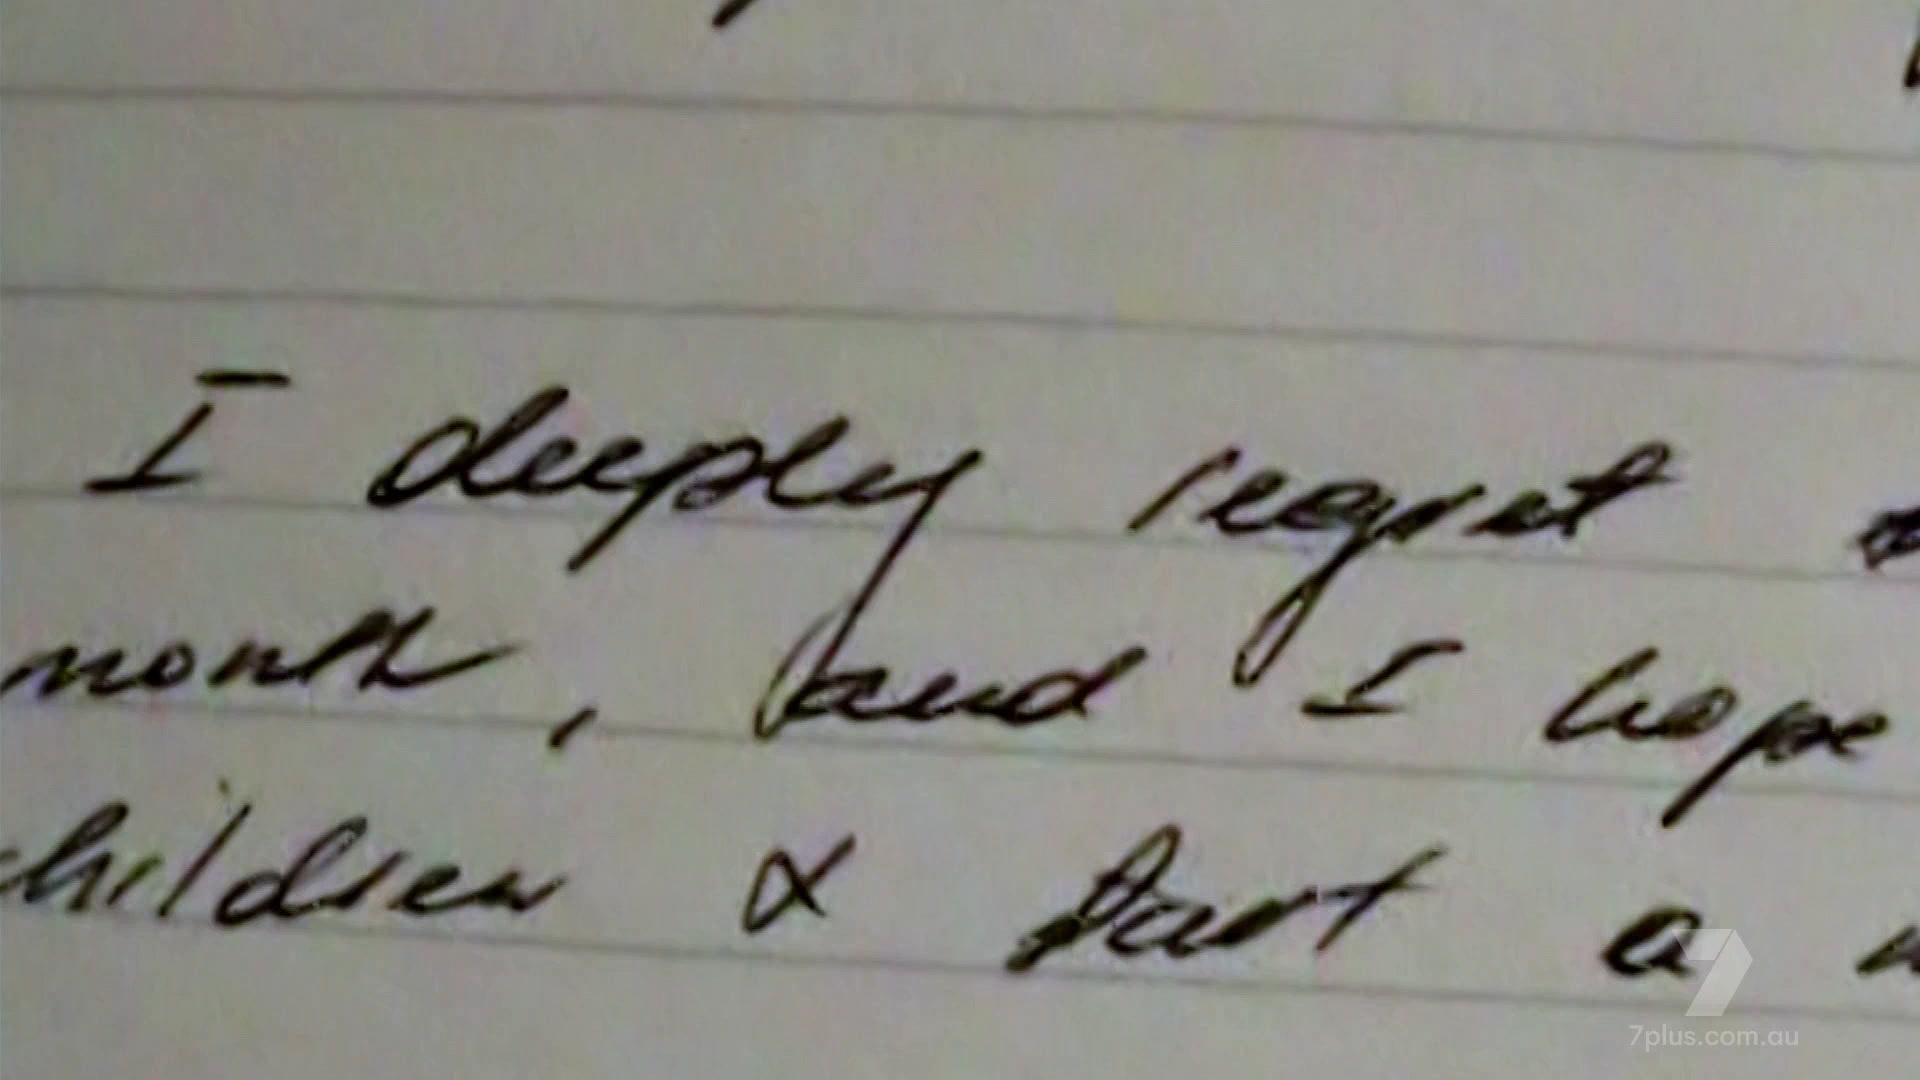 I deeply regret
month, and I hope
children & start a
7plus.com.au